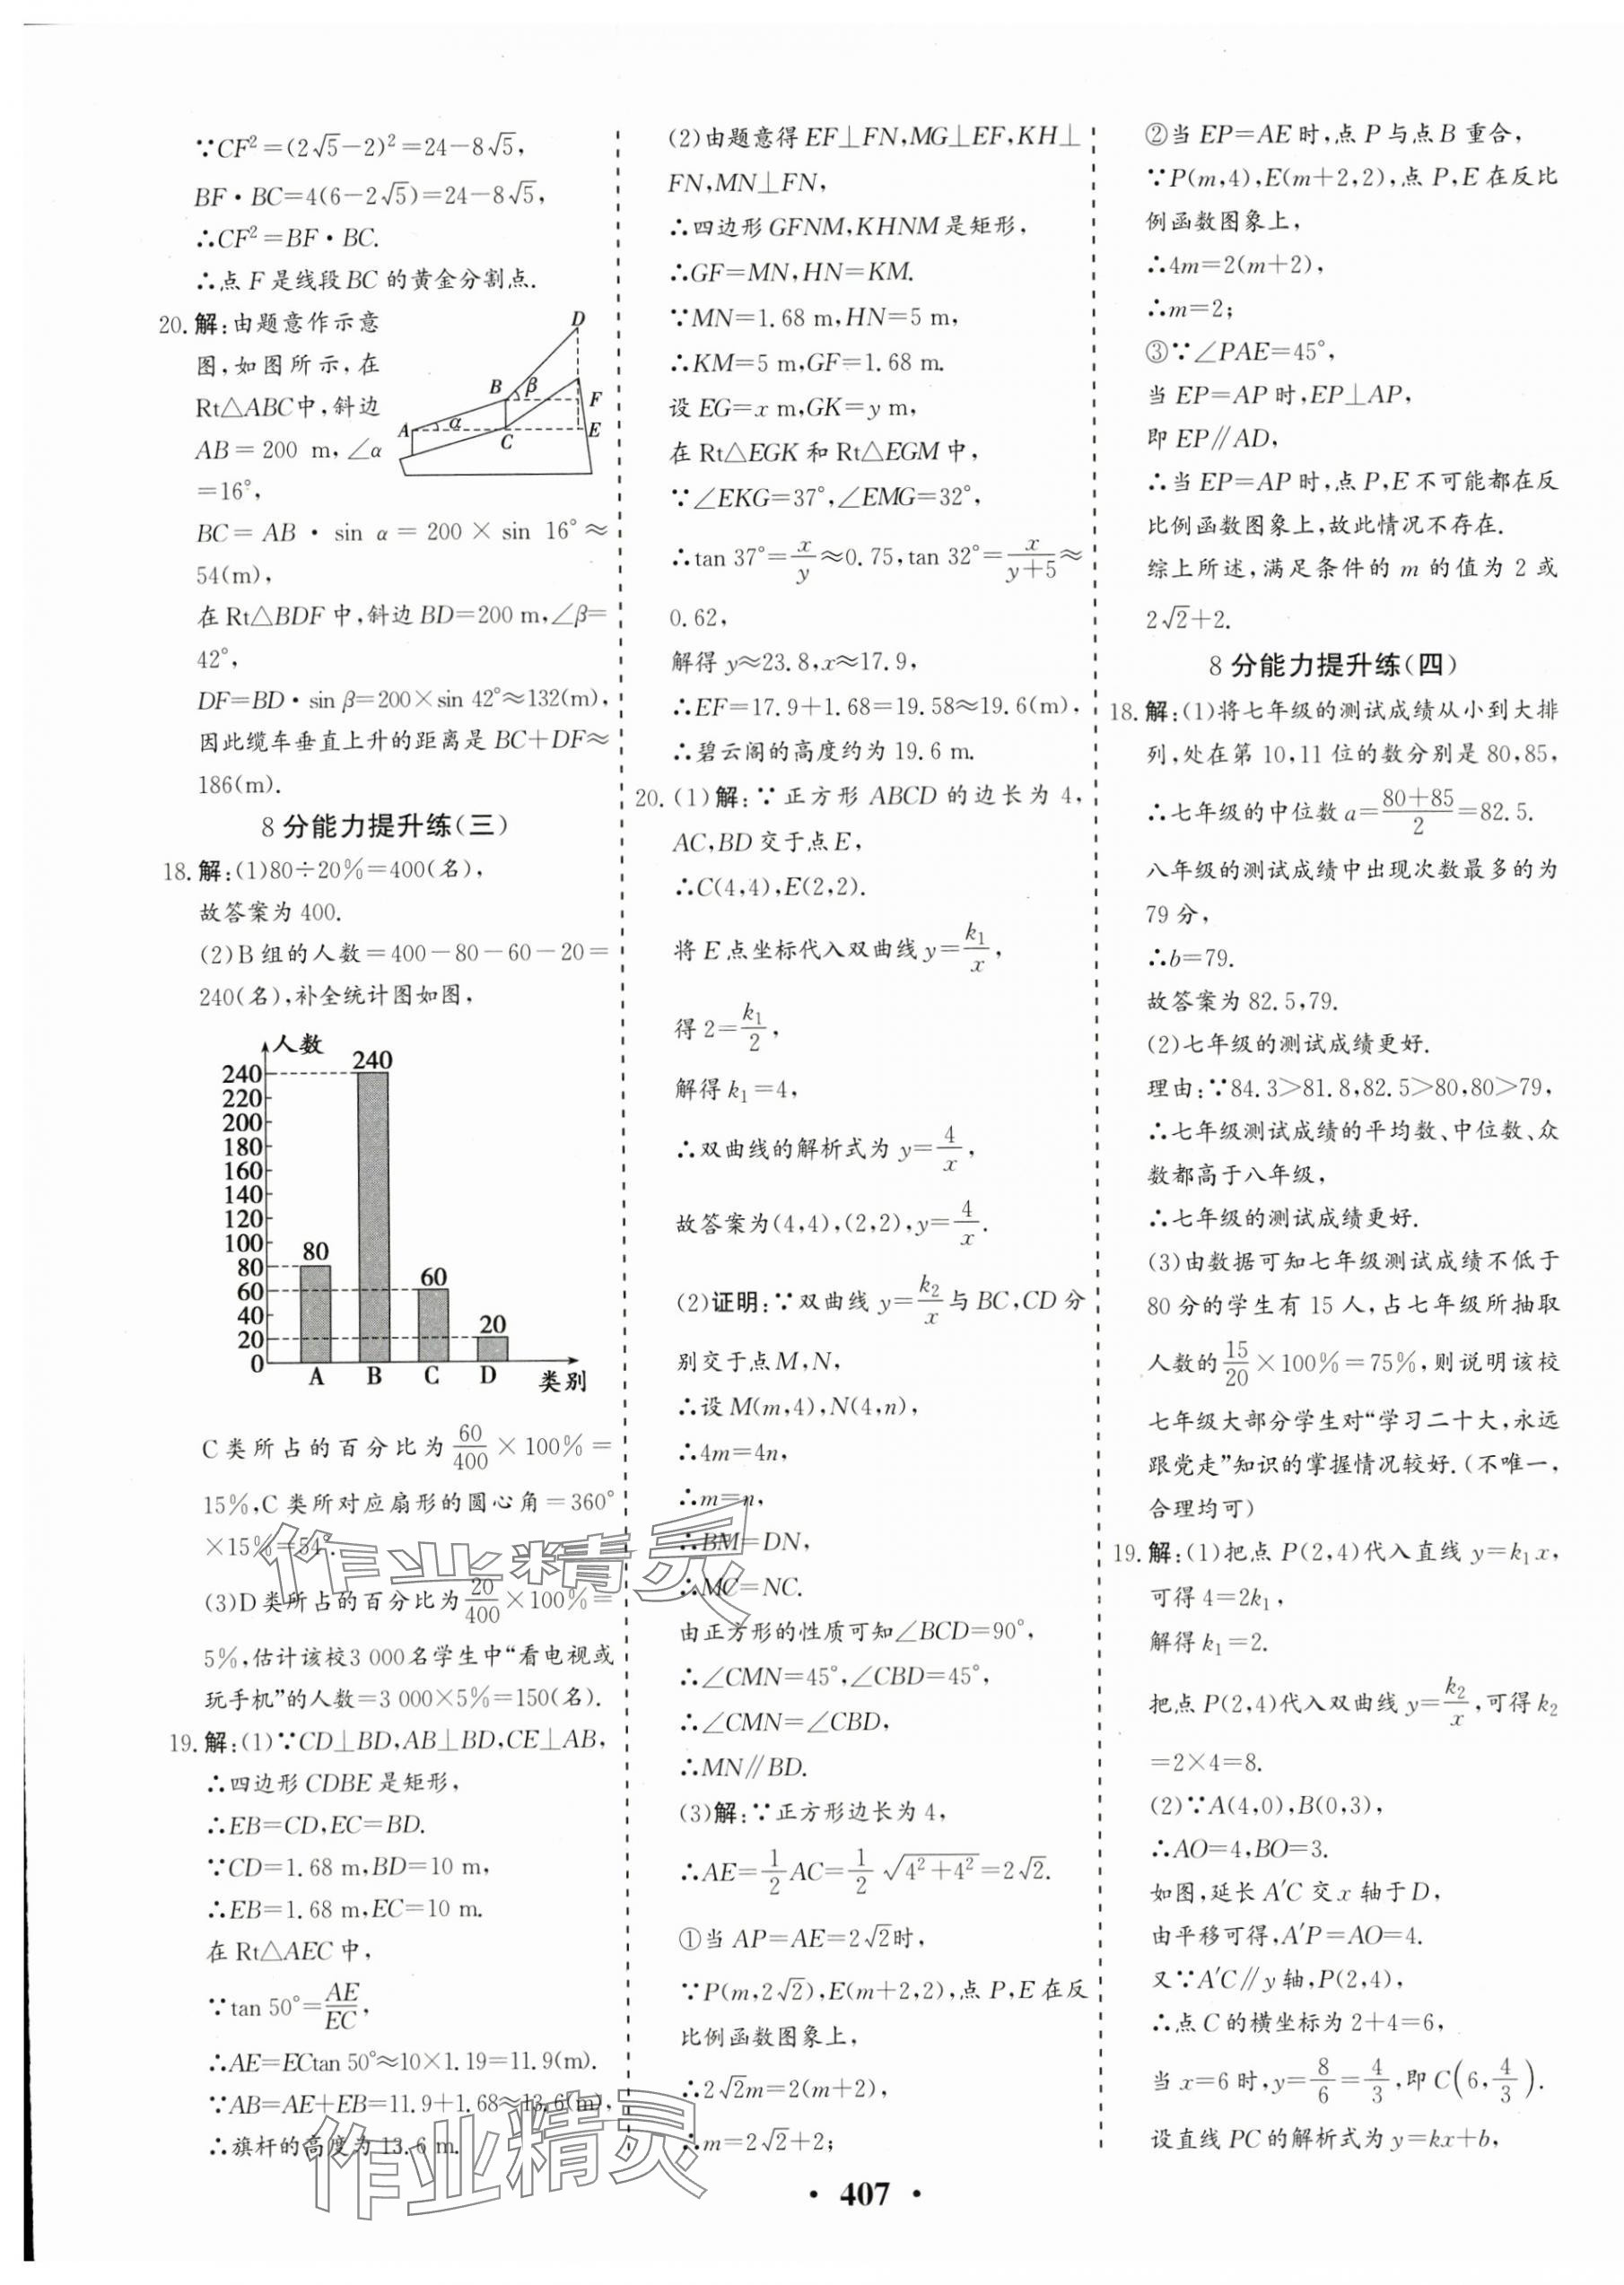 ∵CF²=(2√5-2)²=24-8√5,
BF·BC=4(6-2√5)=24-8√5,
∴CF²=BF·BC.
∴点F是线段BC的黄金分割点.
20.解:由题意作示意
图,如图所示,在
Rt△ABC中,斜边
AB=200 m,∠α
=16°,
D
B
β
F
A
α
C
E
BC=AB·sin α=200×sin 16°≈
54(m),
在Rt△BDF中,斜边BD=200 m,∠β=
42°,
DF=BD·sin β=200×sin 42°≈132(m),
因此缆车垂直上升的距离是BC+DF≈
186(m).
8分能力提升练(三)
18.解:(1)80÷20%=400(名),
故答案为400.
(2)B组的人数=400-80-60-20=
240(名),补全统计图如图,
人数
240
220
200
180
160
140
120
100
80
60
40
20
0
80
240
60
20
A B C D 类别
C类所占的百分比为60/400×100%=
15%,C类所对应扇形的圆心角=360°
×15%=54°.
(3)D类所占的百分比为20/400×100%=
5%,估计该校3 000名学生中“看电视或
玩手机”的人数=3 000×5%=150(名).
19.解:(1)∵CD⊥BD,AB⊥BD,CE⊥AB,
∴四边形CDBE是矩形,
∴EB=CD,EC=BD.
∵CD=1.68 m,BD=10 m,
∴EB=1.68 m,EC=10 m.
在Rt△AEC中,
∵tan 50°=AE/EC,
∴AE=ECtan 50°≈10×1.19=11.9(m).
∵AB=AE+EB=11.9+1.68≈13.6(m),
∴旗杆的高度为13.6 m.
(2)由题意得EF⊥FN,MG⊥EF,KH⊥
FN,MN⊥FN,
∴四边形GFNM,KHNM是矩形,
∴GF=MN,HN=KM.
∵MN=1.68 m,HN=5 m,
∴KM=5 m,GF=1.68 m.
设EG=x m,GK=y m,
在Rt△EGK和Rt△EGM中,
∵∠EKG=37°,∠EMG=32°,
∴tan 37°=x/y≈0.75,tan 32°=x/(y+5)≈
0.62,
解得y≈23.8,x≈17.9,
∴EF=17.9+1.68=19.58≈19.6(m),
∴碧云阁的高度约为19.6 m.
20.(1)解:∵正方形ABCD的边长为4,
AC,BD交于点E,
∴C(4,4),E(2,2).
将E点坐标代入双曲线y=k₁/x,
得2=k₁/2,
解得k₁=4,
∴双曲线的解析式为y=4/x,
故答案为(4,4),(2,2),y=4/x.
(2)证明:∵双曲线y=k₂/x与BC,CD分
别交于点M,N,
∴设M(m,4),N(4,n),
∴4m=4n,
∴m=n,
∴BM=DN,
∴MC=NC.
由正方形的性质可知∠BCD=90°,
∴∠CMN=45°,∠CBD=45°,
∴∠CMN=∠CBD,
∴MN∥BD.
(3)解:∵正方形边长为4,
∴AE=1/2AC=1/2√(4²+4²)=2√2.
①当AP=AE=2√2时,
∵P(m,2√2),E(m+2,2),点P,E在反
比例函数图象上,
∴2√2m=2(m+2),
∴m=2√2+2;
②当EP=AE时,点P与点B重合,
∵P(m,4),E(m+2,2),点P,E在反比
例函数图象上,
∴4m=2(m+2),
∴m=2;
③∵∠PAE=45°,
当EP=AP时,EP⊥AP,
即EP∥AD,
∴当EP=AP时,点P,E不可能都在反
比例函数图象上,故此情况不存在.
综上所述,满足条件的m的值为2或
2√2+2.
8分能力提升练(四)
18.解:(1)将七年级的测试成绩从小到大排
列,处在第10,11位的数分别是80,85,
∴七年级的中位数a=(80+85)/2=82.5.
八年级的测试成绩中出现次数最多的为
79分,
∴b=79.
故答案为82.5,79.
(2)七年级的测试成绩更好.
理由:∵84.3>81.8,82.5>80,80>79,
∴七年级测试成绩的平均数、中位数、众
数都高于八年级,
∴七年级的测试成绩更好.
(3)由数据可知七年级测试成绩不低于
80分的学生有15人,占七年级所抽取
人数的15/20×100%=75%,则说明该校
七年级大部分学生对“学习二十大,永远
跟党走”知识的掌握情况较好.(不唯一,
合理均可)
19.解:(1)把点P(2,4)代入直线y=k₁x,
可得4=2k₁,
解得k₁=2.
把点P(2,4)代入双曲线y=k₂/x,可得k₂
=2×4=8.
(2)∵A(4,0),B(0,3),
∴AO=4,BO=3.
如图,延长A′C交x轴于D,
由平移可得,A′P=AO=4.
又∵A′C∥y轴,P(2,4),
∴点C的横坐标为2+4=6,
当x=6时,y=8/6=4/3,即C(6,4/3).
设直线PC的解析式为y=kx+b,
·407·
作业精灵
作业精灵